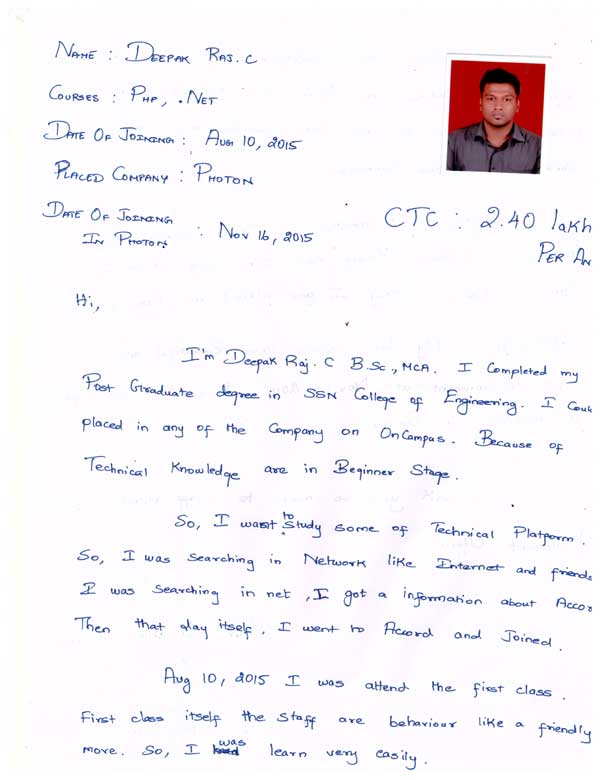 Name : Deepak Raj. C
Courses : PHP, .Net
Date Of Joining : Aug 10, 2015
Placed Company : Photon
Date Of Joining
In Photon : Nov 16, 2015
CTC : 2.40 lakh
Per An
Hi,
I'm Deepak Raj. C B.Sc., MCA. I Completed my
Post Graduate degree in SSN College of Engineering. I Coul
placed in any of the Company on OnCampus. Because of
Technical Knowledge are in Beginner Stage.
So, I want to Study some of Technical Platform.
So, I was Searching in Network like Internet and friends
I was Searching in net, I got a information about Accor
Then that day itself, I went to Accord and Joined.
Aug 10, 2015 I was attend the first class.
First class itself the staff are behaviour like a friendly
more. So, I was learn very easily.